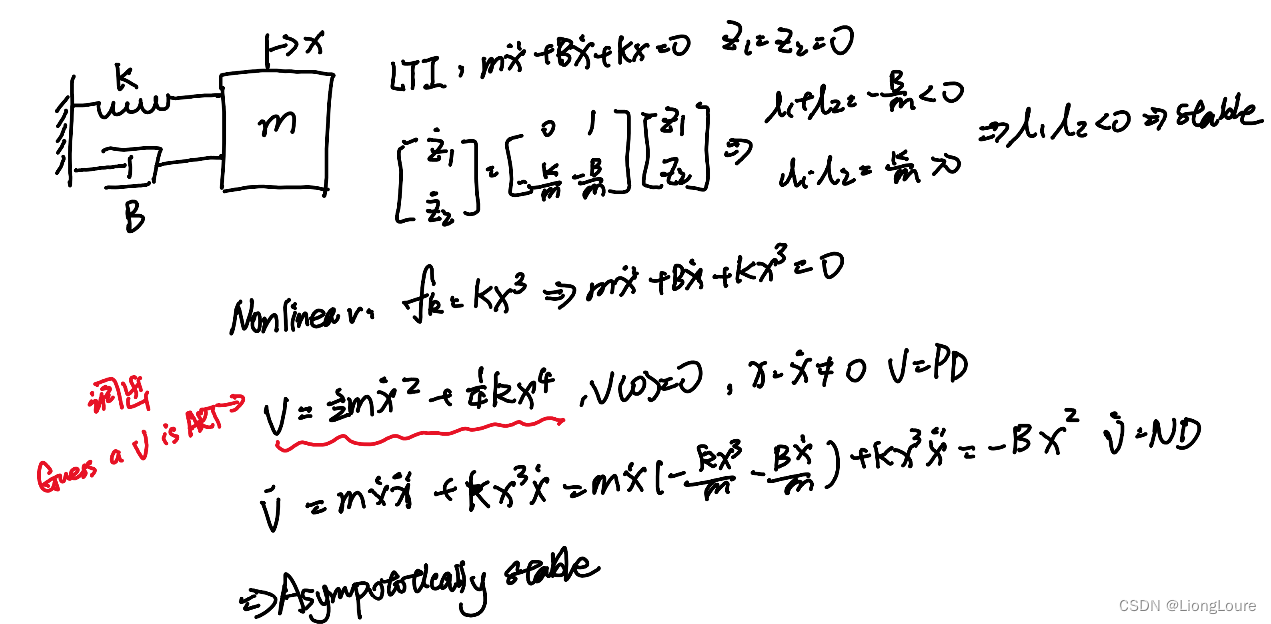 → x
k
m
B
LTI, mẍ+Bẋ+kx=0 z₁=z₂=0
[ż₁ ż₂] = [0 1 -k/m -B/m] [z₁ z₂] ⇒ λ₁+λ₂=-B/m<0 λ₁·λ₂=k/m>0 ⇒ λ₁λ₂<0 ⇒ stable
Nonlinear, fₖ=kx³ ⇒ mẍ+Bẋ+kx³=0
Guess a V is ART →
V = ½mẋ² + ¼kx⁴, V(0)=0, x-ẋ≠0 V=PD
V̇ = mẋẍ + kx³ẋ = mẋ(-kx³/m - Bẋ/m) + kx³ẍ = -Bx² V̇=ND
⇒ Asympototically stable
CSDN @LiongLoure